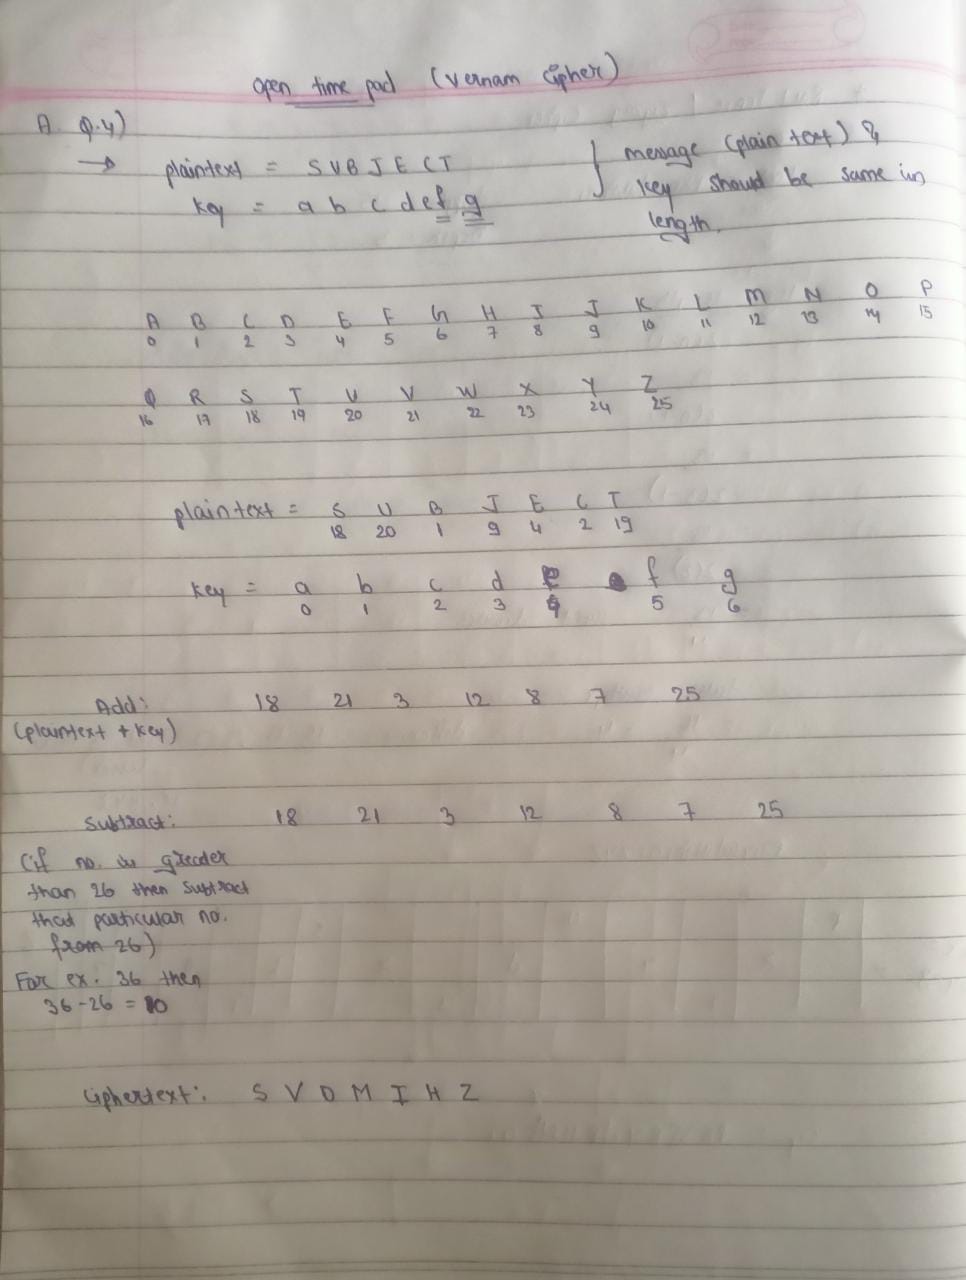 open time pad (Vernam Cipher)
A. Q.4)
→ plaintext = S U B J E C T } message (plain text) &
key = a b c d e f g key should be same in
length.
A B C D E F G H I J K L M N O P
0 1 2 3 4 5 6 7 8 9 10 11 12 13 14 15
Q R S T U V W X Y Z
16 17 18 19 20 21 22 23 24 25
plaintext = S U B J E C T
18 20 1 9 4 2 19
key = a b c d e f g
0 1 2 3 4 5 6
Add: 18 21 3 12 8 7 25
(plaintext + key)
Subtract: 18 21 3 12 8 7 25
(if no. is greader
than 26 then subtract
that particular no.
from 26)
For ex. 36 then
36-26 = 10
Ciphertext: S V D M I H Z